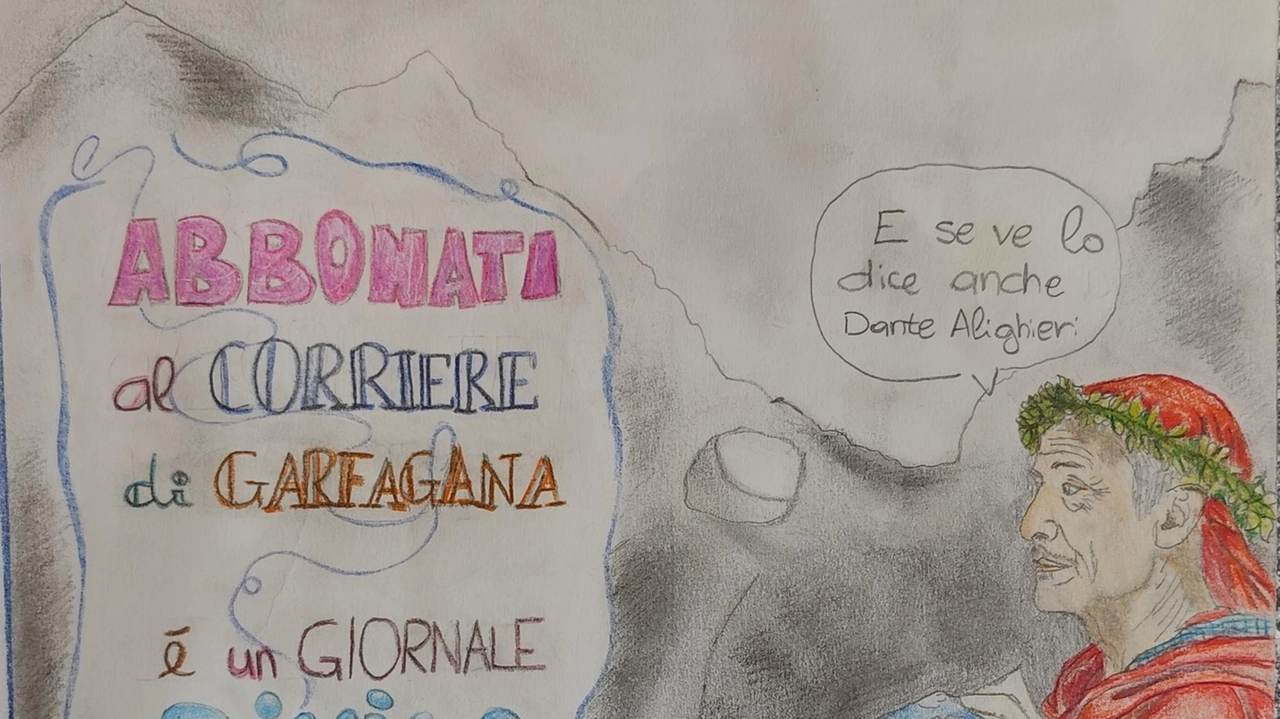 ABBONATI
al CORRIERE
di GARFAGANA
é un GIORNALE
E se ve lo
dice anche
Dante Alighieri